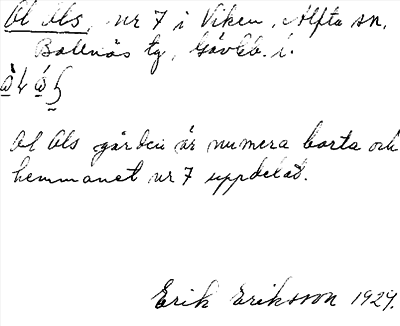 Ol Ols, nr 7 i Viken, Alfta sn,
Bollnäs tg, Gävleb. l.
Ol Ols gården är numera borta och
hemmanet nr 7 uppdelat.
Erik Eriksson 1929.